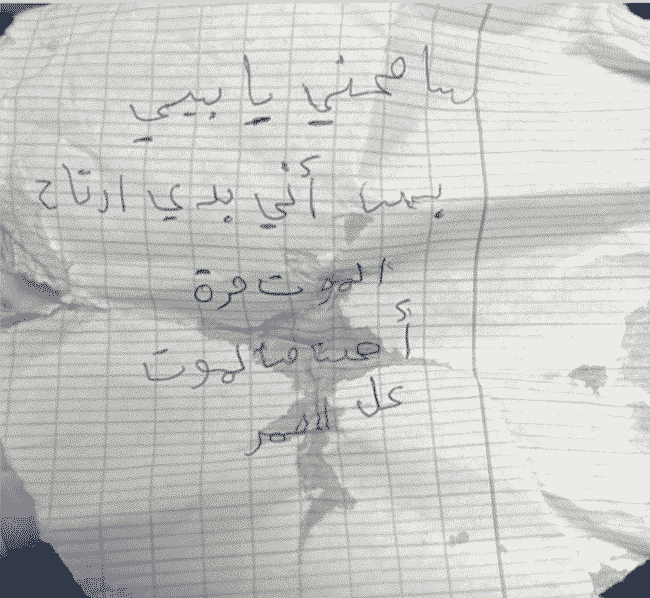 سامحني يا بيي
بس أني بدي ارتاح
الموت مرة
أهون ما لموت
كل العمر